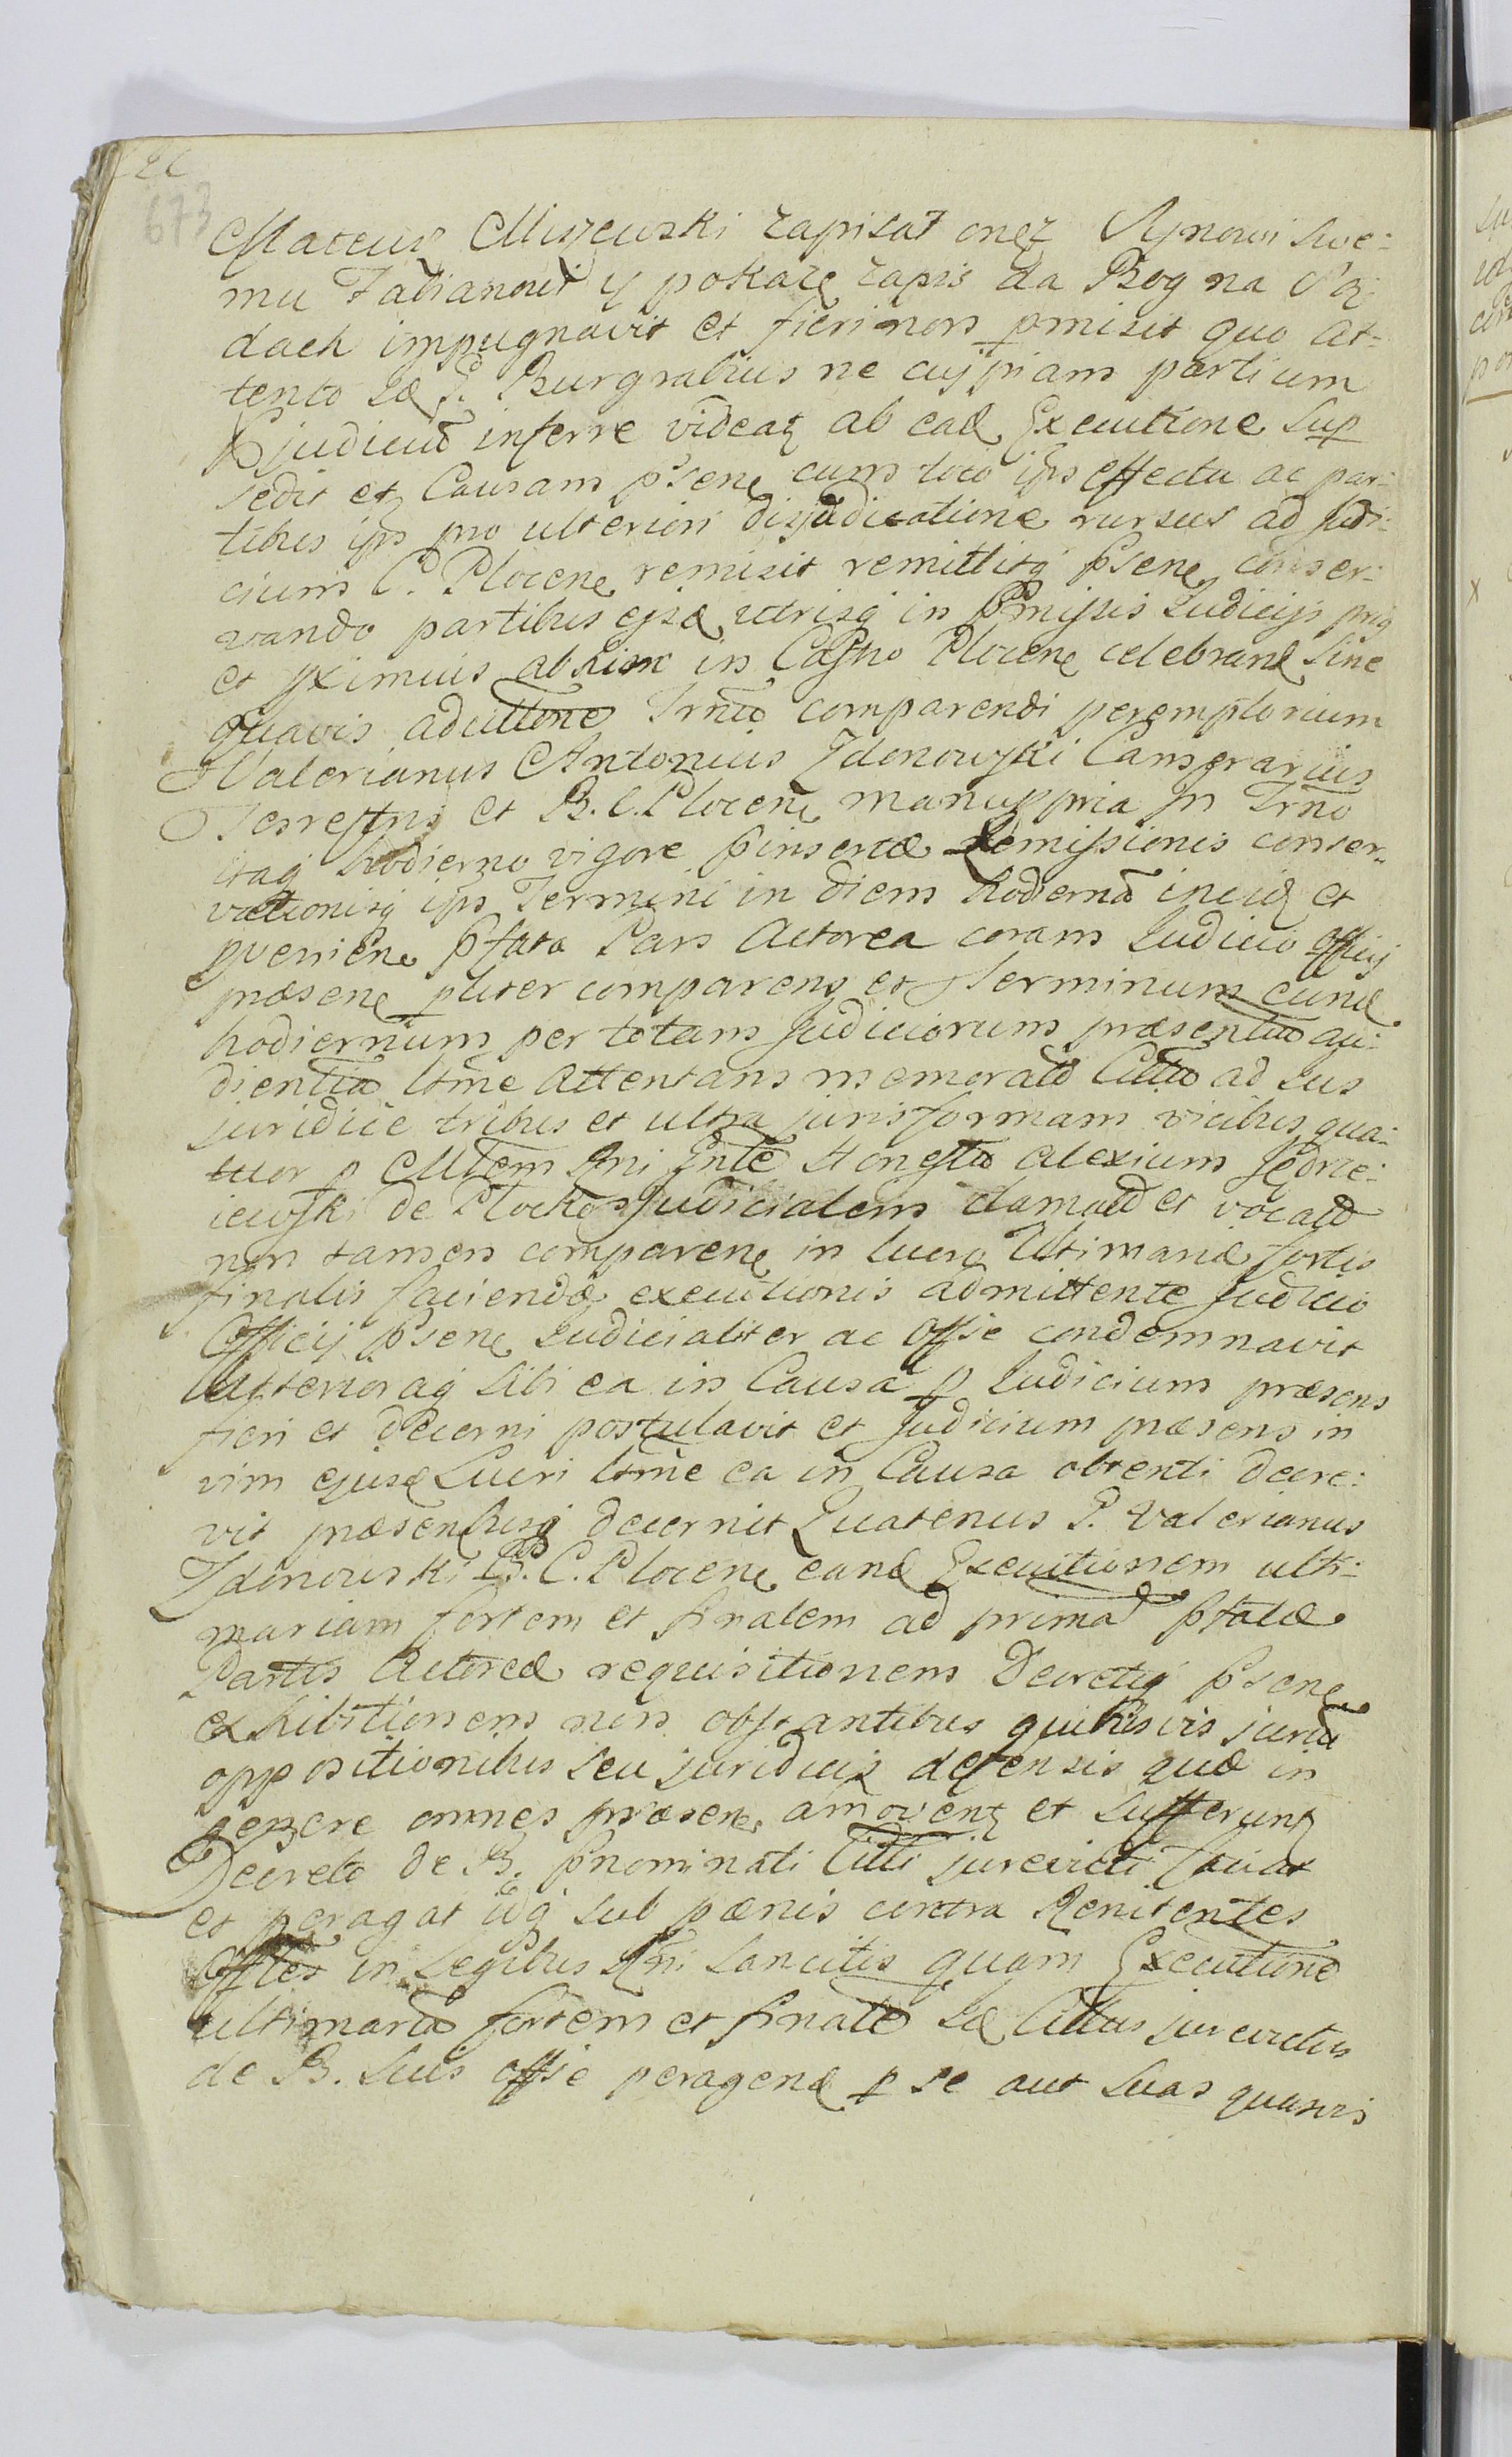 673
Mateusz Miszewski zapisał onęż Synowi swe:
mu Fabianowi y pokaże zapis da Bog na Są:
dach impugnavit et fieri non pmisit quo at:
tento sæ G. Burgrabius ne cujpiam partium
pjudiciũ inferre videat ab ead Executione sup
sedit et Causam psen cum toto ips effectu ac par:
tibus ips pro ulteriori dijudicatione rursus ad Judi:
cium C. Plocen remisit remittitq psen, conser:
vando partibus ejsd utrisq in pmissis Judicijs priq
et pximius ab hinc in Castro Plocen celebrand sine
quavis adcittõne Trnũ comparendi peremptorium
Valerianus Antonius Zdonowski Camerarius
Terrestris et B. C. Plocen manupp pria In Trno
itaq hodierno vigore pinsertæ Remissionis conser:
vationisq ips Termini in diem hodiernã incid et
pvenien pfata Pars Actorea coram Judicio Officij
præsen pliter comparens et Terminum eund
hodiernum per totam Judiciorum præsentiũ au:
dientiã ltme attentans memoratũ Cittũ ad Jus
juridice tribus et ultra juris formam vicibus qua:
tuor p Mltem Rni Gnlẽ Honestũ Alexium Jędrze:
iewski de Plocko Judicialem clamatũ et vocatũ
non tamen comparen in lucro Ultimariæ fortis
finalis faciendæ executionis admittente Judicio
Officij psen Judicialiter ac Offse condemnavit
Ulterioraq sibi ea in Causa p Judicium præsens
fieri et decerni postulavit et Judicium præsens in
vim ejusd Lucri ltme ea in Causa obtenti decre:
vit præsentibusq decernit Quatenus G. Valerianus
Zdonowski B. C. Plocen eand Executionem ulti:
mariam fortem et finalem ad primã pfatæ
Partis Actoreæ requisitionem Decretiq psen
exhibitionem non obstantibus quibusvis jurid
oppositionibus seu juridicis defensis quæ in
genere omnes præsen amovent et sufferunt
Decreto de B. pnominati Citti jurevicti faciat
et peragat idq sub pænis contra Renitentes
Offles in Legibus Rni sancitis quam Executionẽ
ultimariã fortem et finalẽ sæ Cittus jurevictus
de B. suis offse peragend p se aut suas quasvis